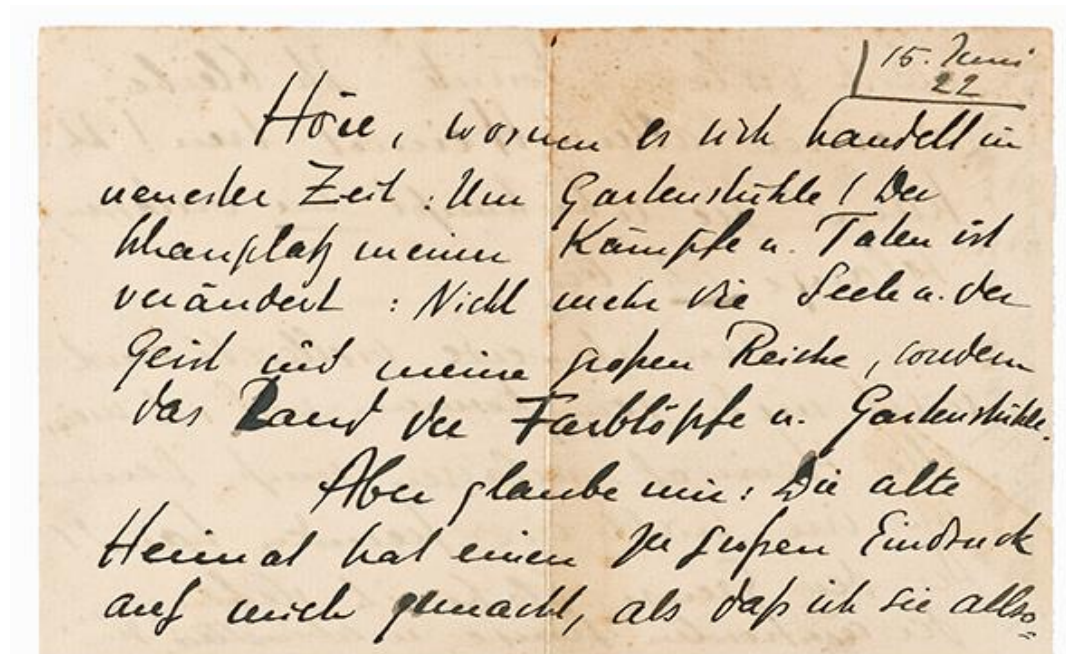 15. Juni
22
Höre, worum es sich handelt in
neuester Zeit: Um Gartenstühle! Der
Schauplatz meiner Kämpfe u. Taten ist
verändert: Nicht mehr die Seele u. der
Geist sind meine großen Reiche, sondern
das Land der Farbtöpfe u. Gartenstühle.
Aber glaube mir: Die alte
Heimat hat einen zu großen Eindruck
auf mich gemacht, als daß ich sie allzu=